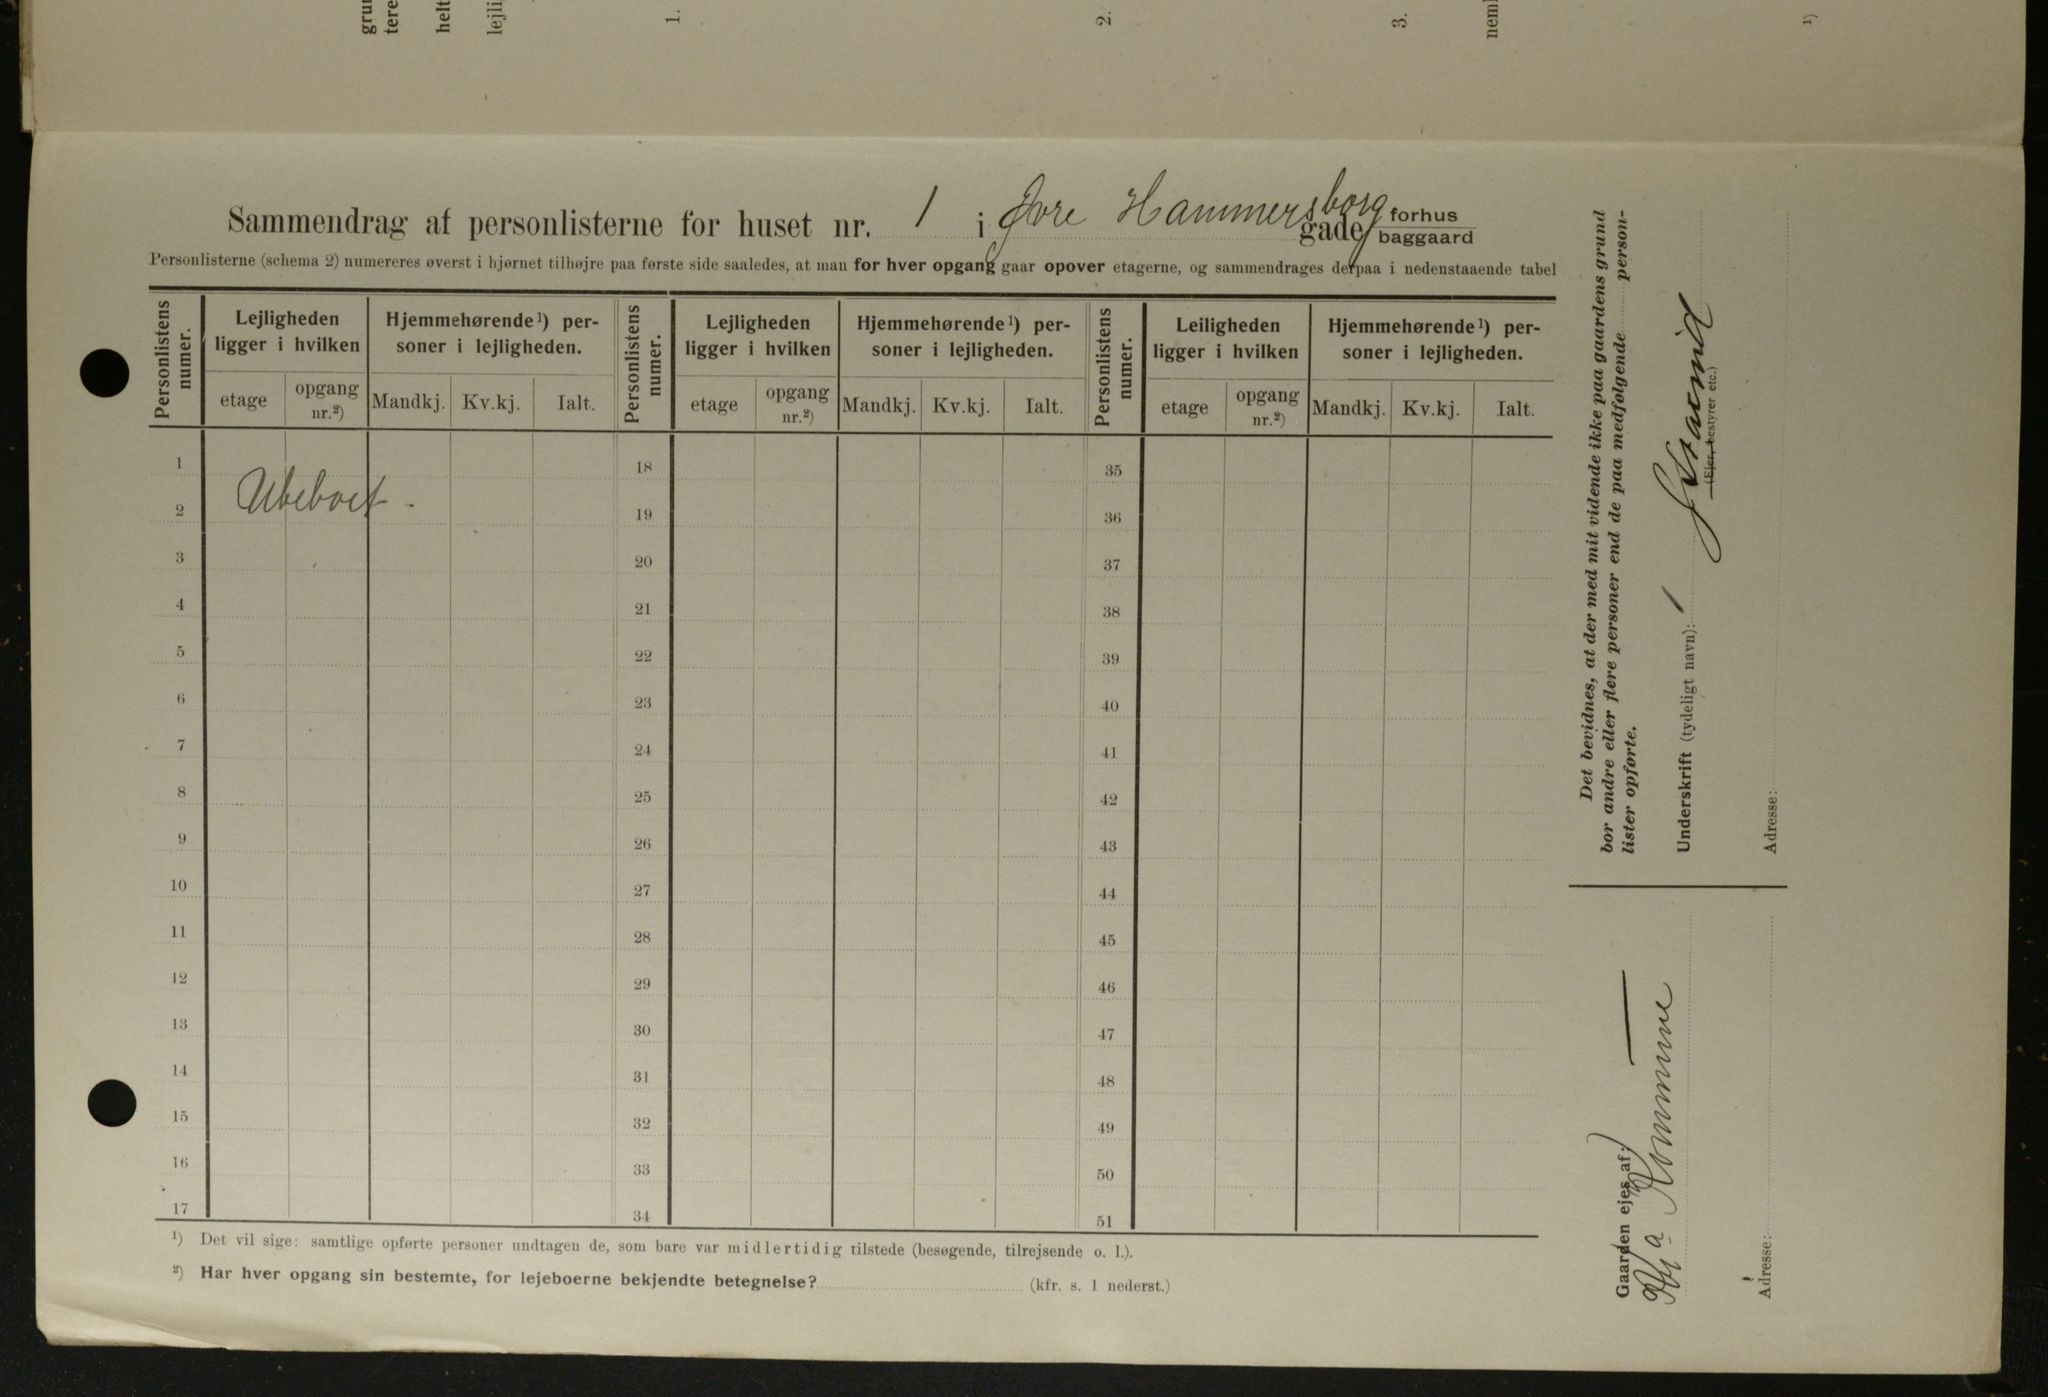 grun
tere
helt
lejli
1.
2.
3.
neml
¹)
Sammendrag af personlisterne for huset nr. 1 i Øvre Hammersborg gade forhus
baggaard
Personlisterne (schema 2) numereres øverst i hjørnet tilhøjre paa første side saaledes, at man for hver opgang gaar opover etagerne, og sammendrages derpaa i nedenstaaende tabel
Personlistens numer. Lejligheden ligger i hvilken Hjemmehørende ¹) personer i lejligheden. Personlistens numer. Lejligheden ligger i hvilken Hjemmehørende ¹) personer i lejligheden. Personlistens numer. Leiligheden ligger i hvilken Hjemmehørende ¹) personer i lejligheden.
etage opgang nr.²) Mandkj. Kv.kj. Ialt. etage opgang nr.²) Mandkj. Kv.kj. Ialt. etage opgang nr.²) Mandkj. Kv.kj. Ialt.
1 18 35
2 Ubeboet - 19 36
3 20 37
4 21 38
5 22 39
6 23 40
7 24 41
8 25 42
9 26 43
10 27 44
11 28 45
12 29 46
13 30 47
14 31 48
15 32 49
16 33 50
17 34 51
¹) Det vil sige: samtlige opførte personer undtagen de, som bare var midlertidig tilstede (besøgende, tilrejsende o. l.).
²) Har hver opgang sin bestemte, for lejeboerne bekjendte betegnelse? (kfr. s. 1 nederst.)
Det bevidnes, at der med mit vidende ikke paa gaardens grund
bor andre eller flere personer end de paa medfølgende person-
lister opførte.
Underskrift (tydeligt navn):
(Ejer, bestyrer etc.)
Adresse:
Gaarden ejes af:
Kr.a Kommune
Adresse: